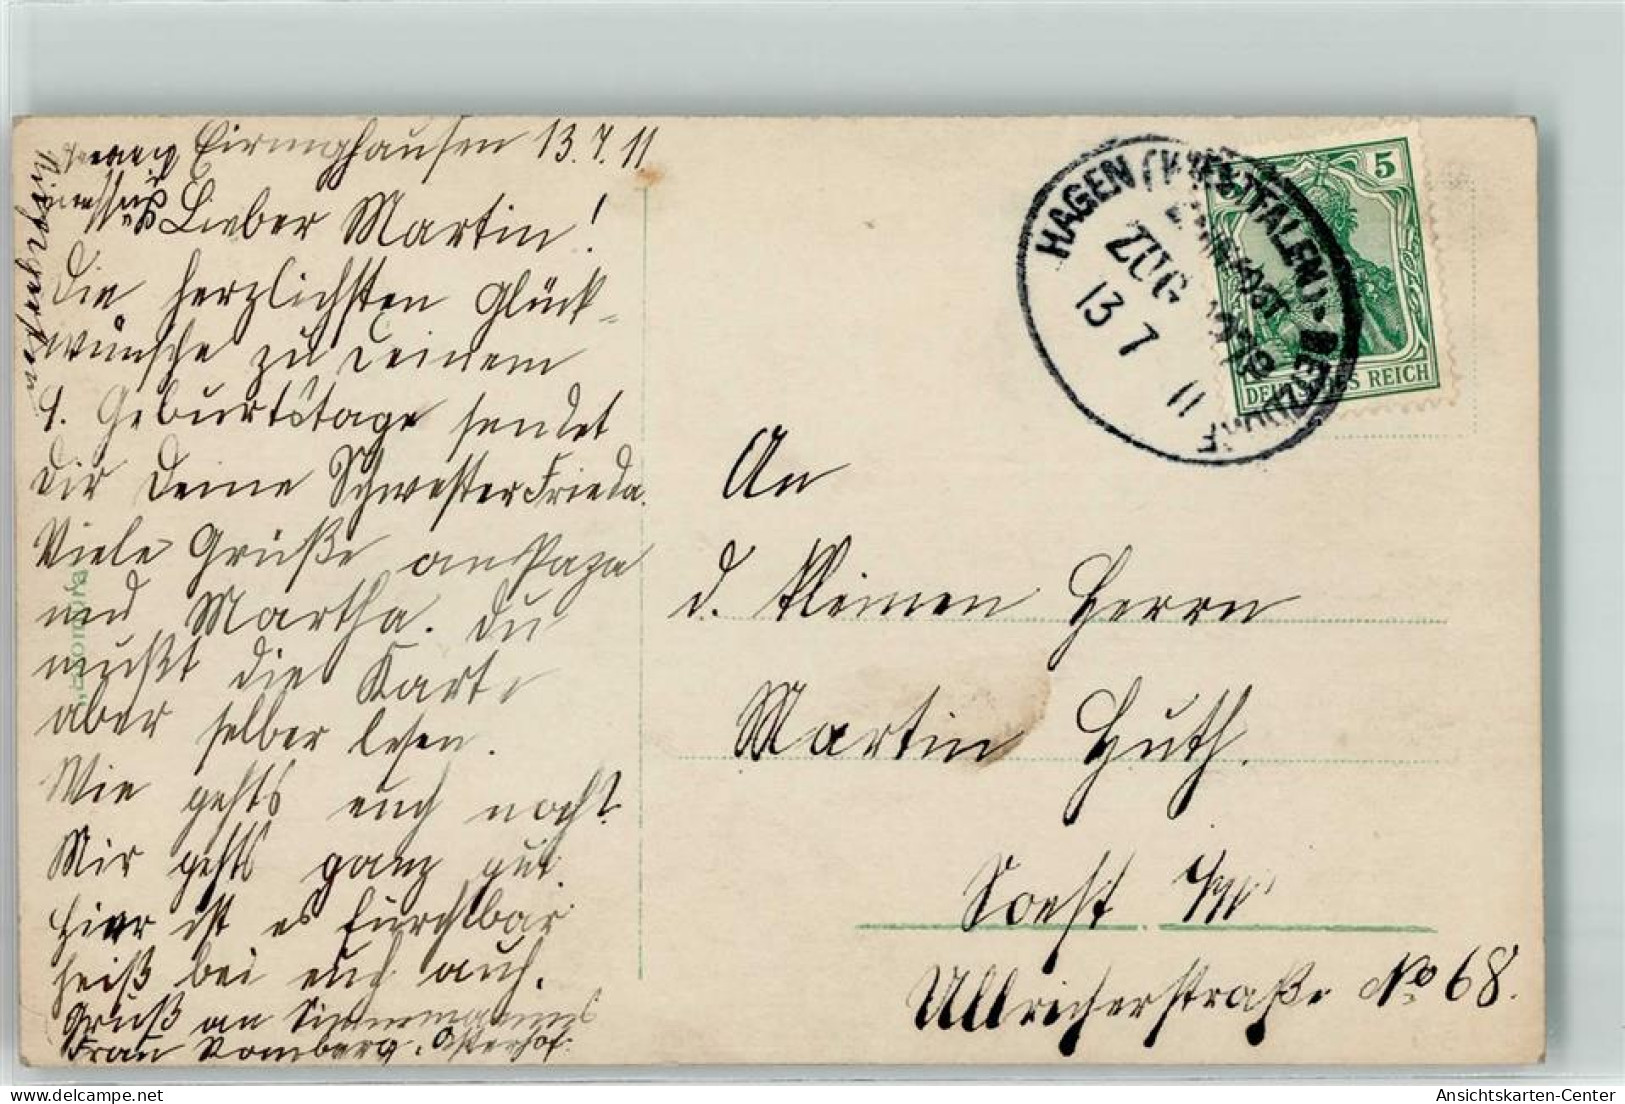 Eiringhausen 13.7.11
Lieber Martin!
Die herzlichsten Glück-
wünsche zu Deinem
9. Geburtstage sendet
Dir Deine Schwester Frieda.
Viele Grüße an Papa
und Martha. Du
mußt die Karte
aber selber lesen.
Wie gehts euch noch?
Mir gehts ganz gut.
Hier ist es furchtbar
heiß bei euch auch.
Gruß an Simmermanns
Frau Romberg. Osterhof.
HAGEN (WESTFALEN) - BETZDORF
BAHNPOST
ZUG
13 7 11
5
DEUTSCHES REICH
An
d. kleinen Herrn
Martin Huth.
Soest i/W
Ullricherstraße No 68.
Ansichtskarten-Center